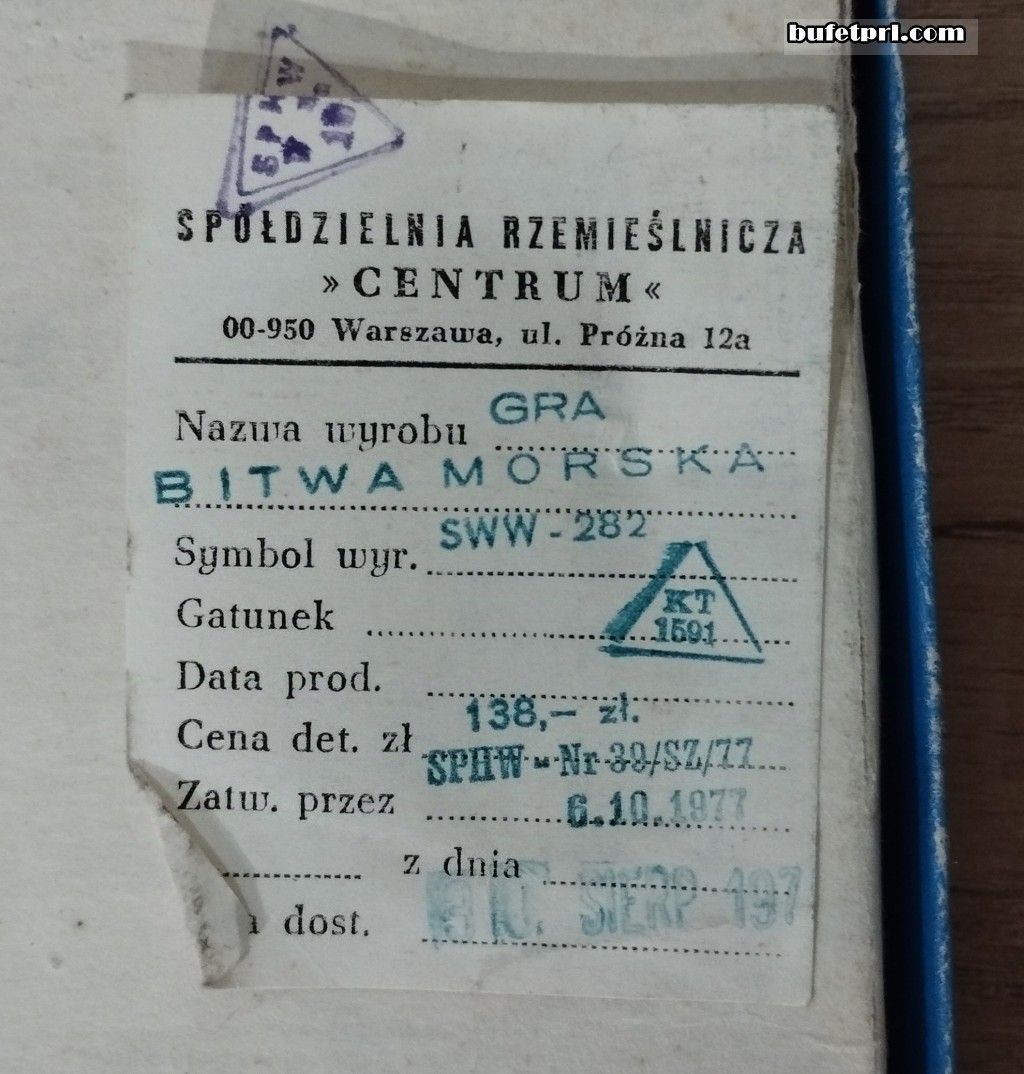 bufetprl.com
SPHW
SPÓŁDZIELNIA RZEMIEŚLNICZA
»CENTRUM«
00-950 Warszawa, ul. Próżna 12a
Nazwa wyrobu GRA
BITWA MORSKA
Symbol wyr. SWW-282
KT
Gatunek 1591
Data prod.
138,- zł.
Cena det. zł
SPHW-Nr 39/SZ/77
Zatw. przez 6.10.1977
z dnia
dost. SIERP 197